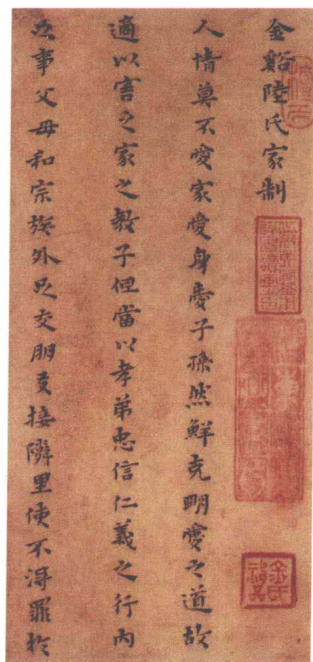 金谿陸氏家制
人情莫不愛家愛身愛子孫然鮮克明愛之道故
適以害之家之教子但當以孝弟忠信仁義之行內
事父母和宗族外足交朋友接隣里使不得罪於